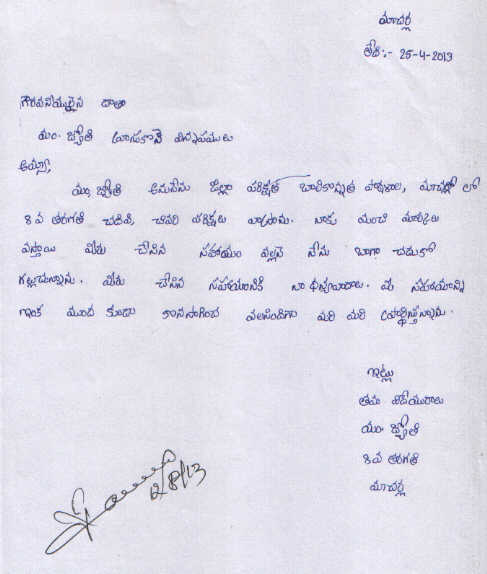 మాచర్ల
తేది:- 25-4-2013
గౌరవనీయులైన దాతా
యం. జ్యోతి వ్రాసుకొనే విన్నపములు
అయ్యా,
యం. జ్యోతి అనునేను జిల్లా పరిషత్ బాలికొన్నత పాఠశాల, మాచర్ల లో
8 వ తరగతి చదివి, చివరి పరీక్షలు వ్రాసాను. నాకు మంచి మార్కులు
వస్తాయి మీరు చేసిన సహాయం వల్లనే నేను బాగా చదుకో
గల్గుచున్నాను. మీరు చేసిన సహాయానికి నా ధన్యవాదాలు. మీ సహాయాన్ని
ఇంక ముందు కూడు కొనసాగించ వలసిందిగా మరి మరి ప్రార్థిస్తున్నాను.
ఇట్లు
తమ విధేయురాలు
యం. జ్యోతి
8 వ తరగతి
మాచర్ల
12/8/13